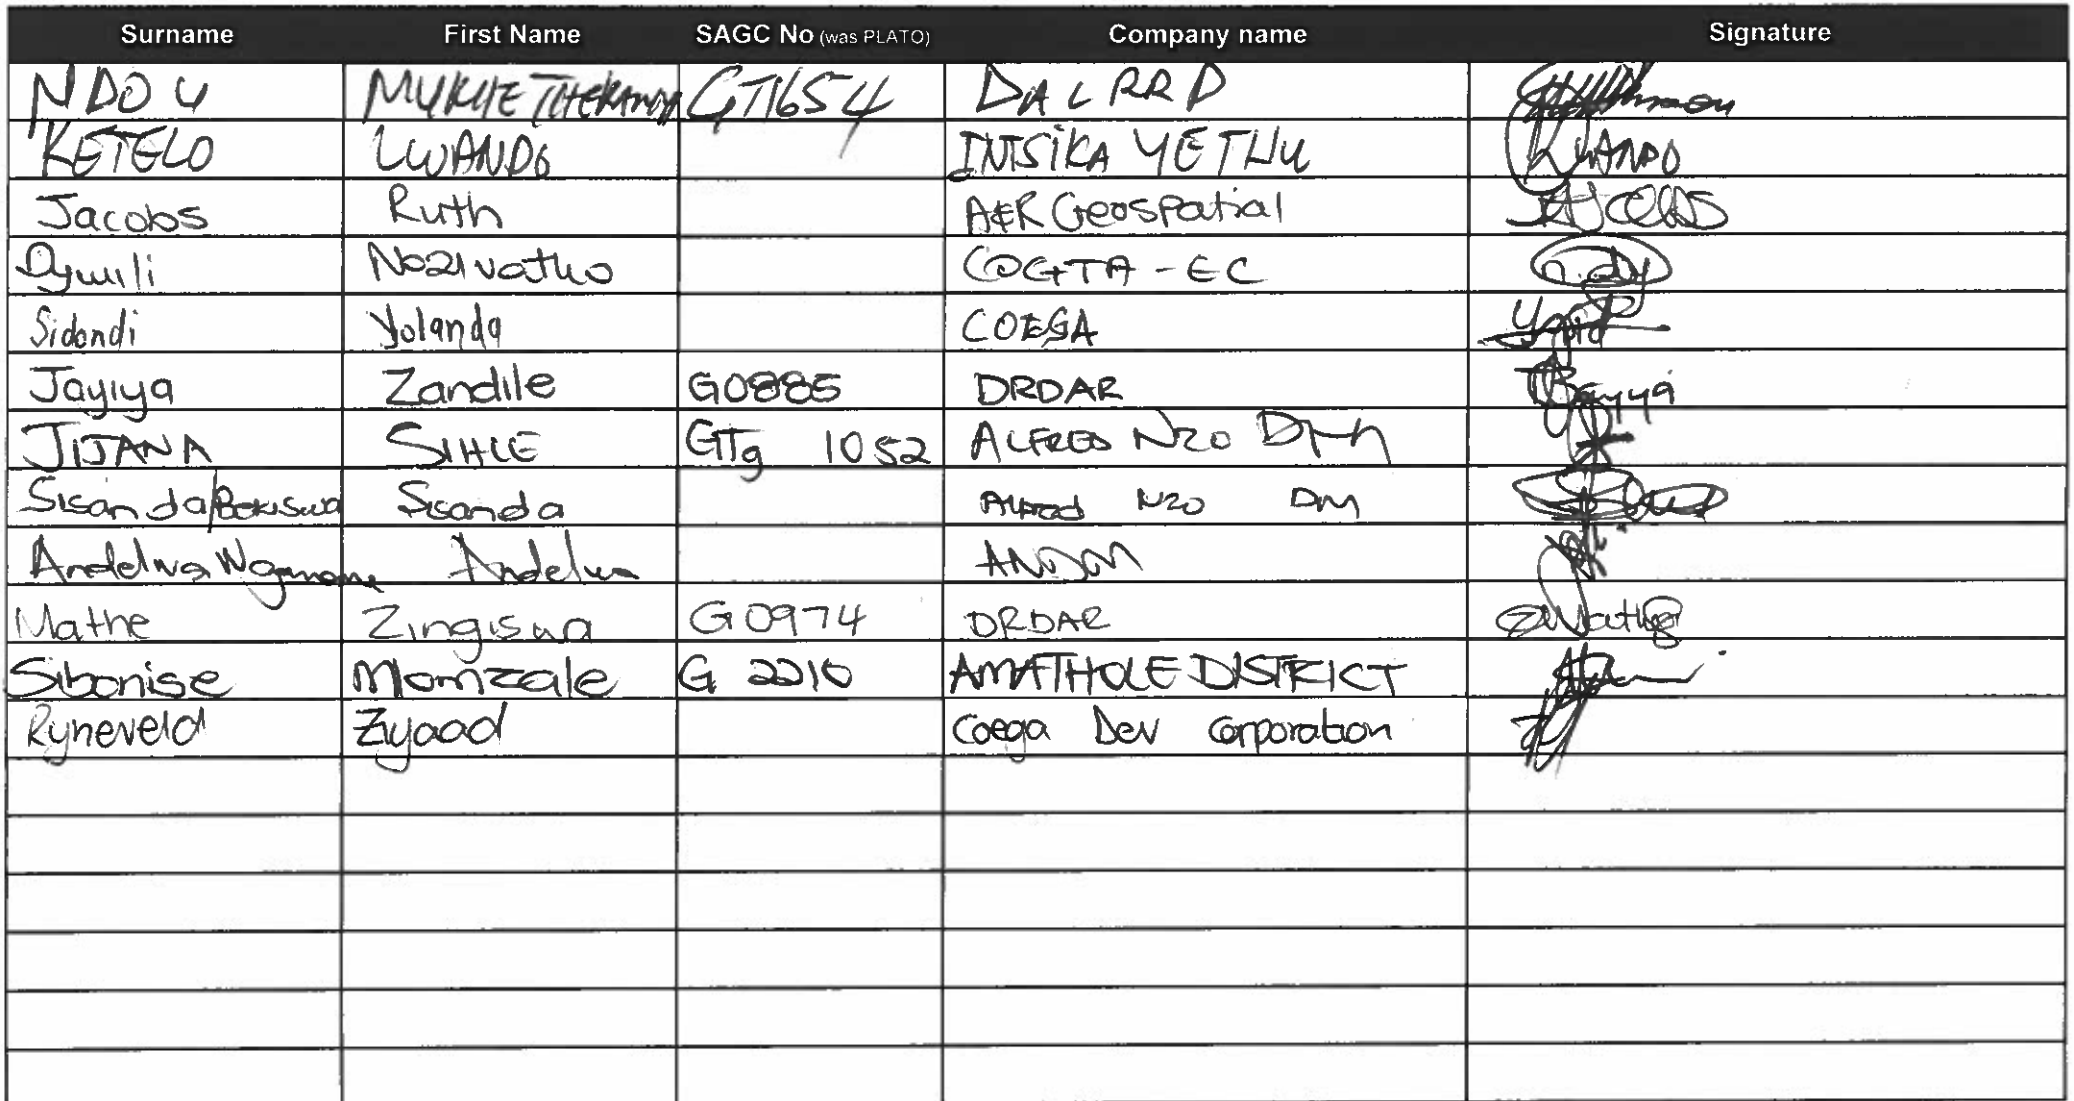 Surname First Name SAGC No (was PLATO) Company name Signature
NDOU GT1654 DALRRD
KETELO LWANDO INTSIKA YETHU LWANDO
Jacobs Ruth A&R Geospatial Jacobs
Nozivatho COGTA - EC
Sidondi Yolanda COEGA
Jayiya Zandile G0885 DRDAR Jayiya
JIJANA SIHLE GTg 1052 ALFRED NZO DM
Sisanda/Bekiswa Sisanda Alfred NZO DM
Andelwa Andelwa ANDM
Mathe Zingiswa G0974 DRDAR
Sibonise Momzale G 2210 AMATHOLE DISTRICT
Ryneveld Ziyaad Coega Dev Corporation